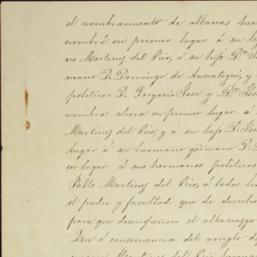 el nombramiento de albaceas
nombró en primer lugar á su
no Martinez del Rio, á su hijo Dn
mano D. Domingo de Ansoategui, y
politicos D. Gregorio Jose y Dn
nombra ahora en primer lugar a
Martinez del Rio, y á su hijo D.
lugar á su hermano germano D.
cer lugar á sus hermanos politicos
Pablo Martinez del Rio, á todos
el poder y facultad que de derecho
para que desempeñen el albaceazgo
Que á consecuencia del arreglo de
Martinez del Rio